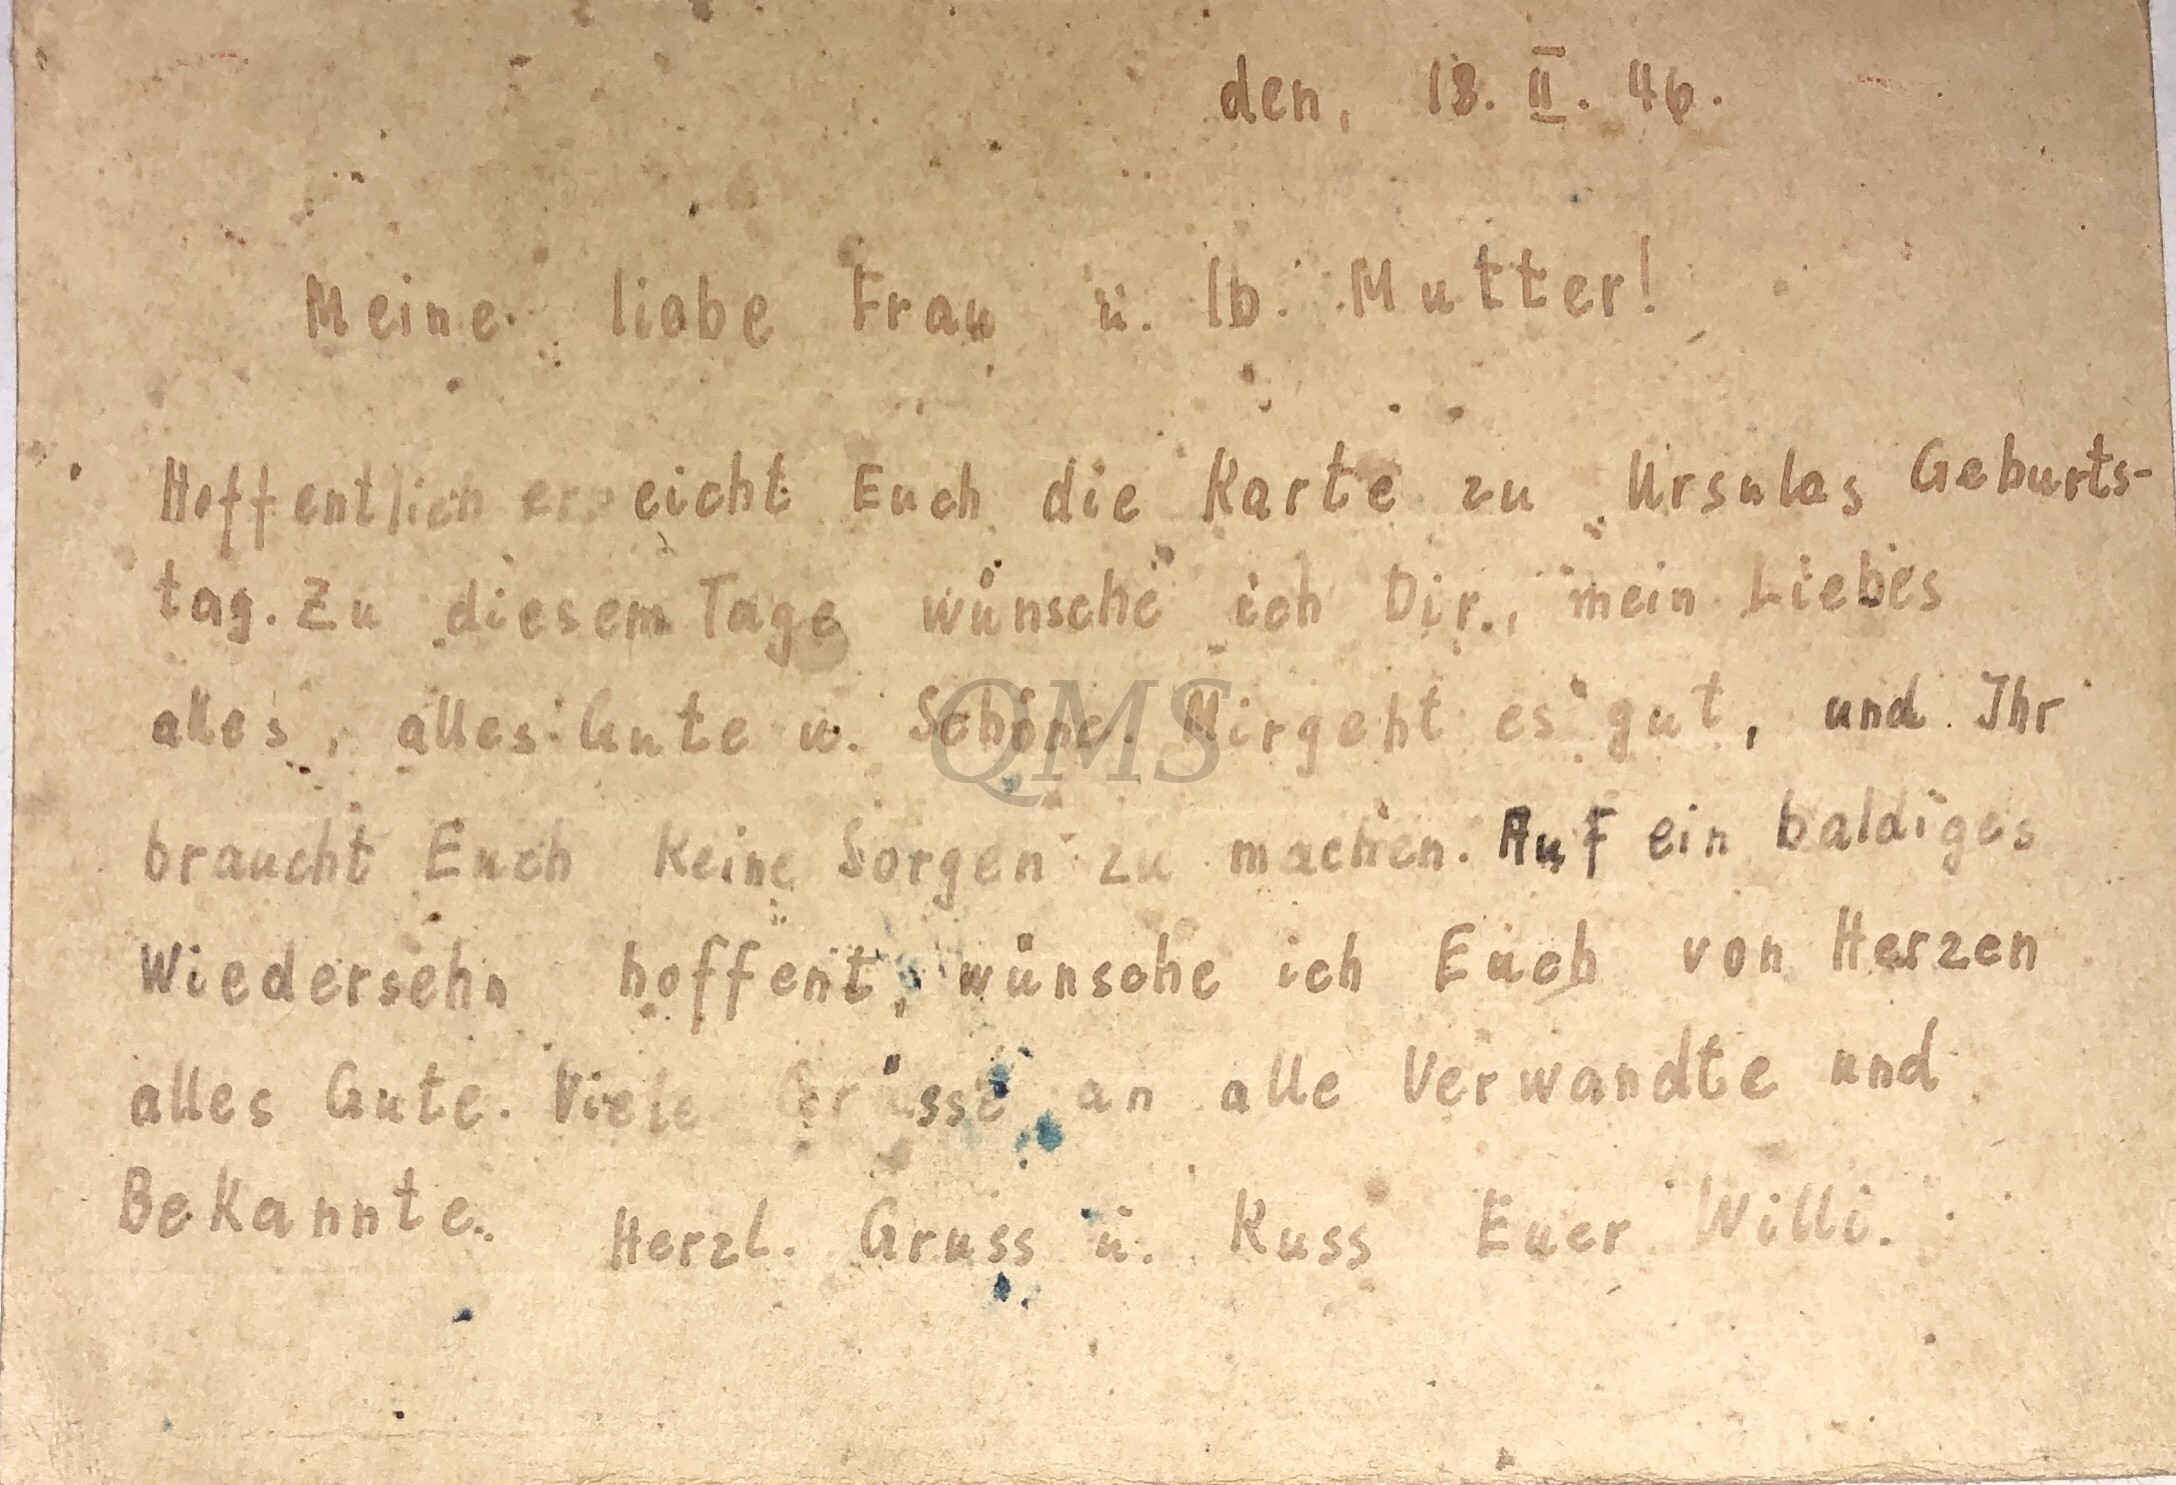 den, 18. II. 46.
Meine liebe Frau u. lb. Mutter!
Hoffentlich erreicht Euch die Karte zu Ursulas Geburts-
tag. Zu diesem Tage wünsche ich Dir, mein Liebes
alles, alles Gute u. Schöne. Mir geht es gut, und Ihr
QMS
braucht Euch keine Sorgen zu machen. Auf ein baldiges
Wiedersehn hoffent, wünsche ich Euch von Herzen
alles Gute. Viele Grüsse an alle Verwandte und
Bekannte. Herzl. Gruss u. Kuss Euer Willi.